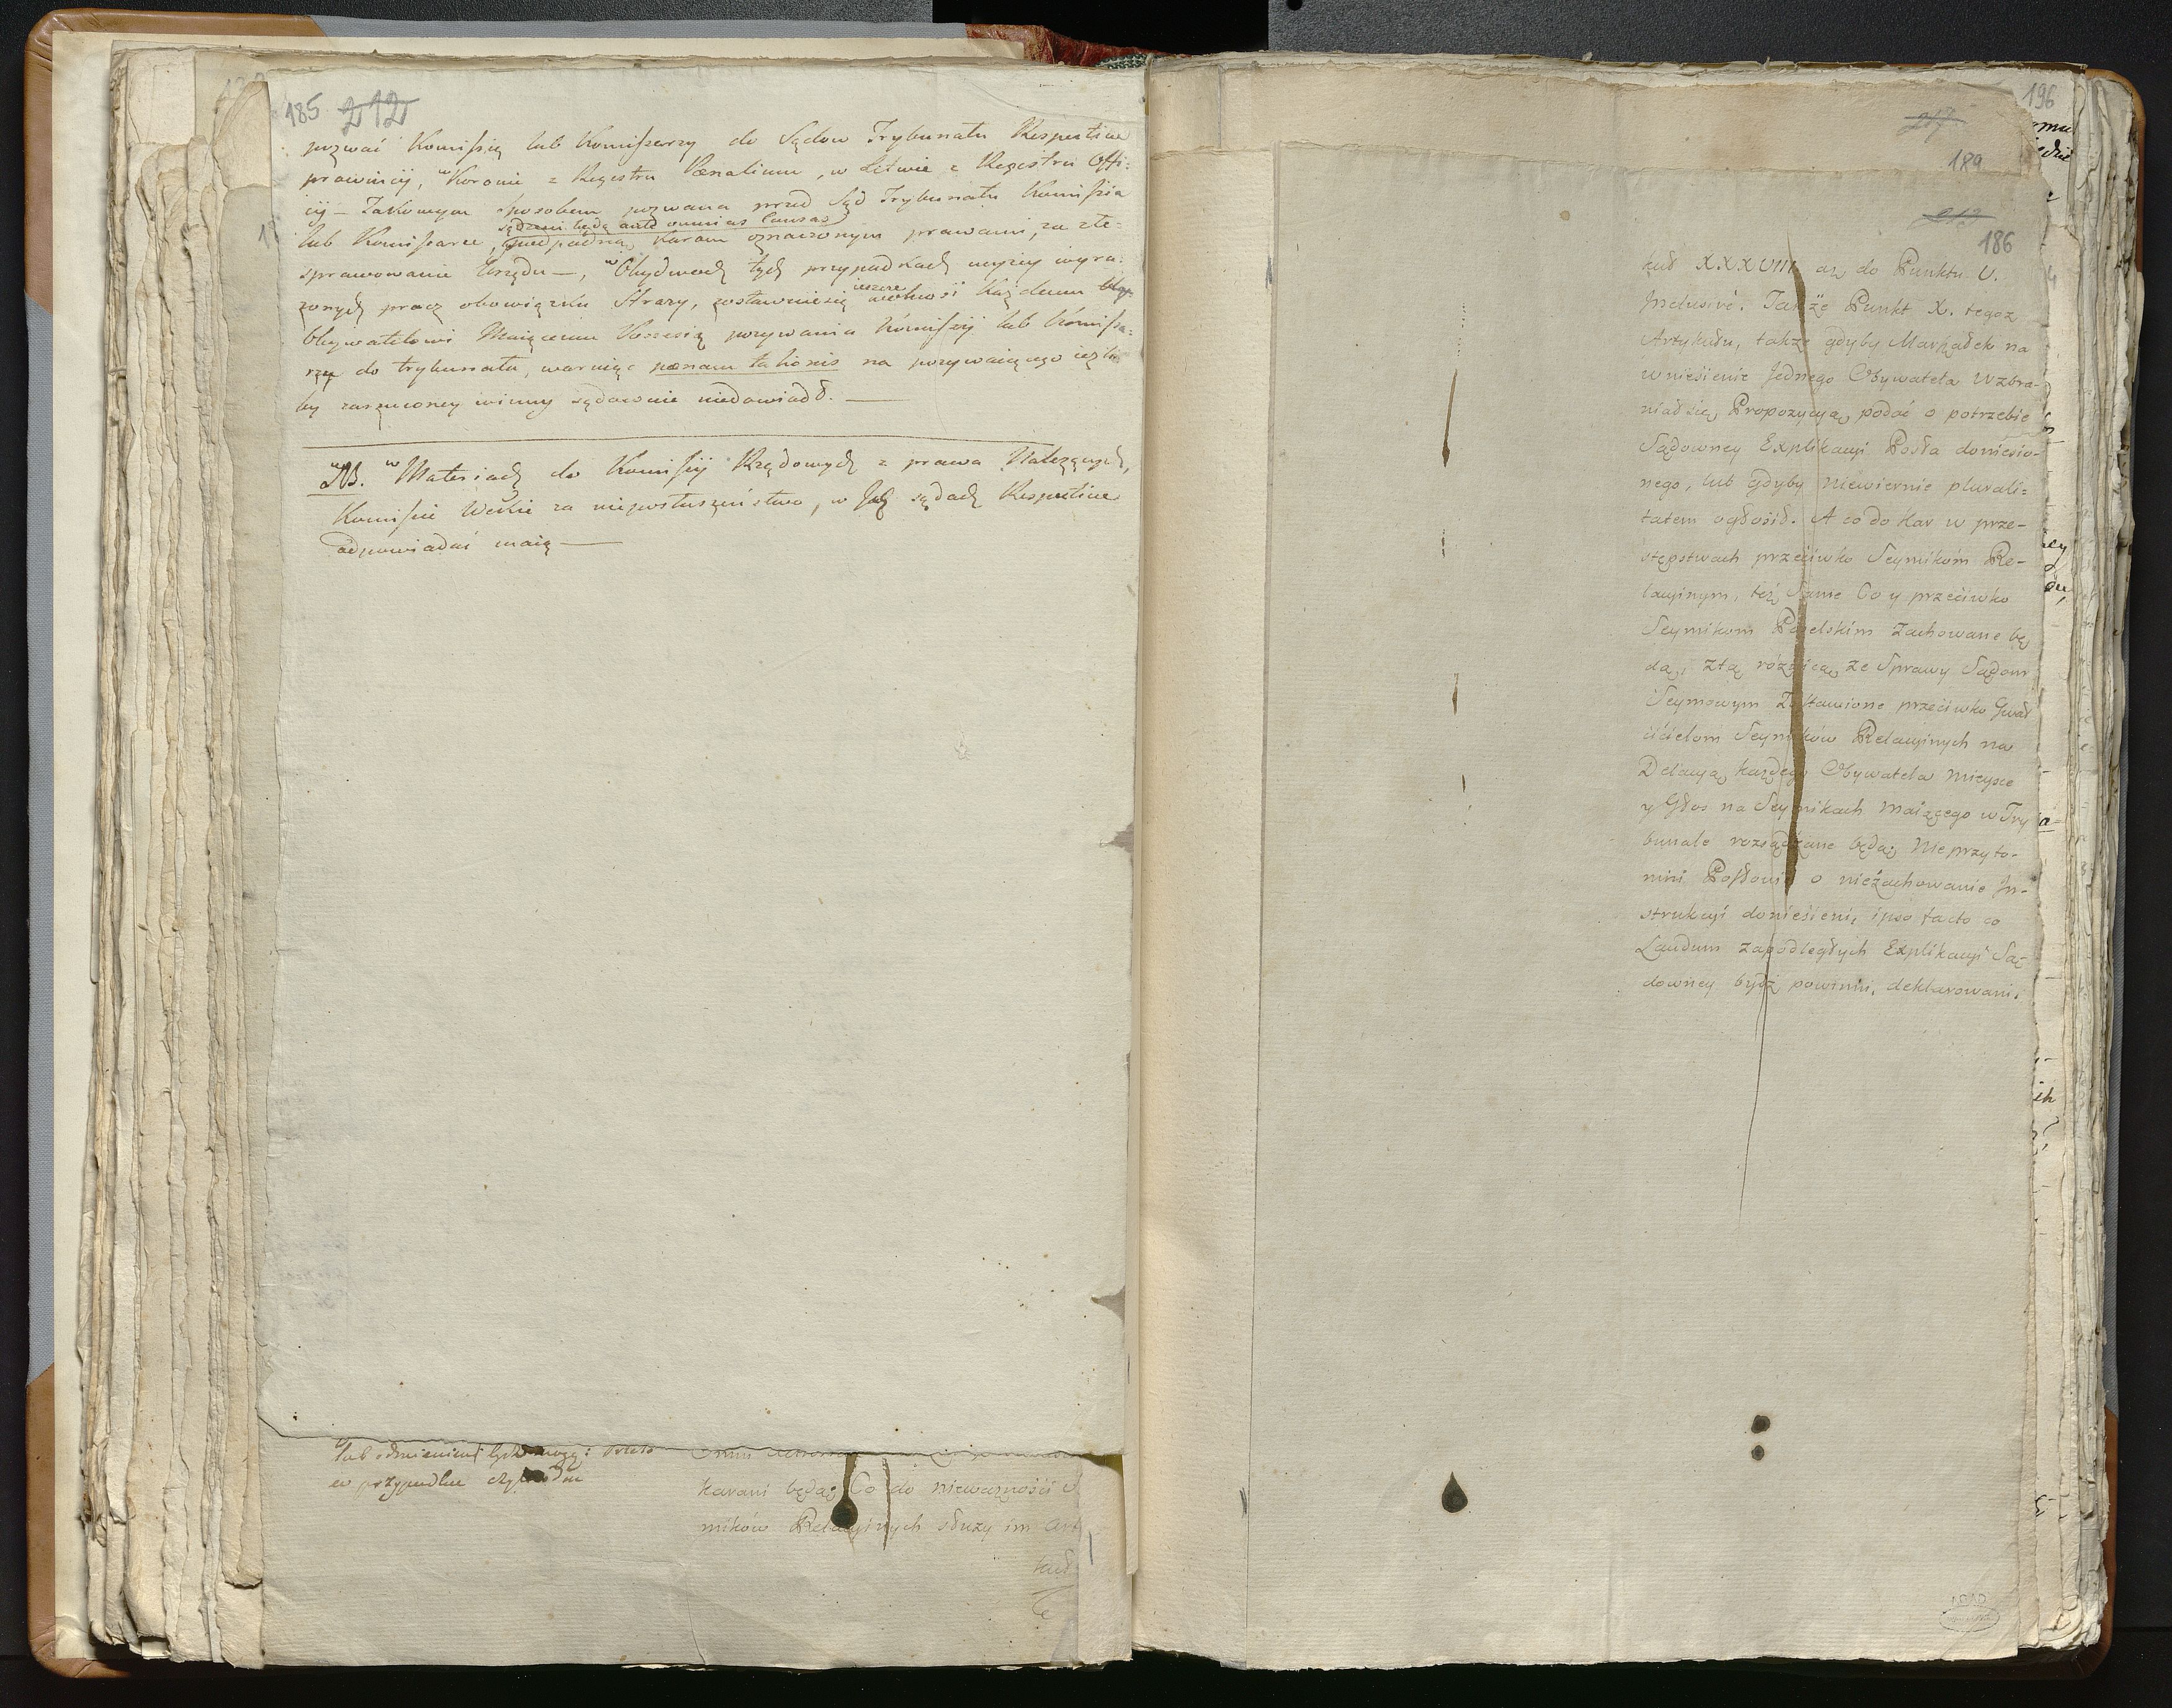 185 212
pozwać Komissią lub Komissarzy do Sądow Trybunału Respective
prowincij, w Koronie z Regestru Poenalium, w Litwie z Regestru Offi:
cij – Takowym sposobem pozwana przed Sąd Trybunału Komissia
sądzeni będą ante omnes Causas
lub Komissarze, karom oznaczonym prawami, za złe
sprawowanie Urzędu –, w Obydwoch tych przypadkach wyżey wyra:
żonych pracz obowiązku Straży, zostawuie się ieszcze wolność Każdemu
Obywatelowi Maiącemu Possessią pozywania Komissij lub Komissa:
rzy do trybunału, waruiąc poenam talionis na pozywaiącego ieżli
by zarzuconey winny sądownie niedowiodł. —
NB. w Materiach do Komissij Rządowych z prawa Należących,
Komissie Woiewie za nieposłuszeństwo, w Jch sądach Respective
odpowiadać maią —
lub odmienione bydź mogą:
w przypadku
karani będą; Co do nieważności S
mików Relacyinych służy im Art
kuł
196
217
189
213
186
kuł XXXVIII aż do Punktu V.
Inclusivè. Także Punkt X. tegoż
Artykułu, także gdyby Marszałek na
wniesienie Jednego Obywatela wzbra-
niał się Propozycyą podać o potrzebie
Sądowney Explikacyi Posła doniesio-
nego, lub gdyby niewiernie plurali=
tatem ogłosił. A co do Kar w prze-
stępstwach przećiwko Seymikom Re-
lacyinym, też Same Co y przećiwko
Seymikom Poselskim Zachowane bę
dą, z tą rożnicą, że Sprawy Sądom
Seymowym Zostawione przećiwko Gwał
ćićielom Seymików Relacyinych na
Delacyą każdego Obywatela mieysce
y Głos na Seymikach maiącego w Try
bunale rozsądzane będą; Nieprzyto-
mni Posłowie o niezachowanie In-
strukcyi doniesieni, ipso facto co
Laudum zapodległych Explikacyi Są-
downey bydź powinni, deklarowani.